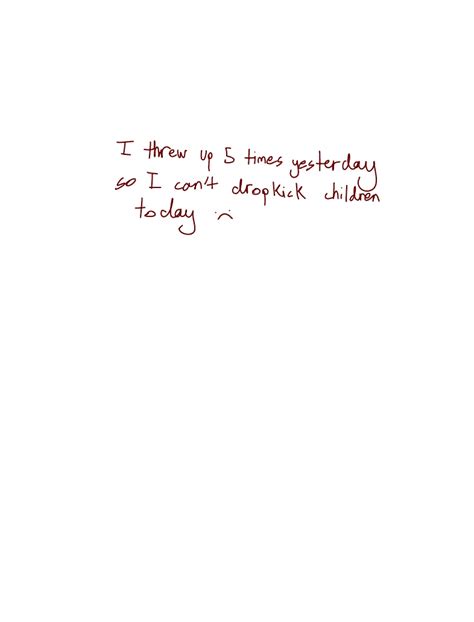 I threw up 5 times yesterday
so I can't dropkick children
today :(